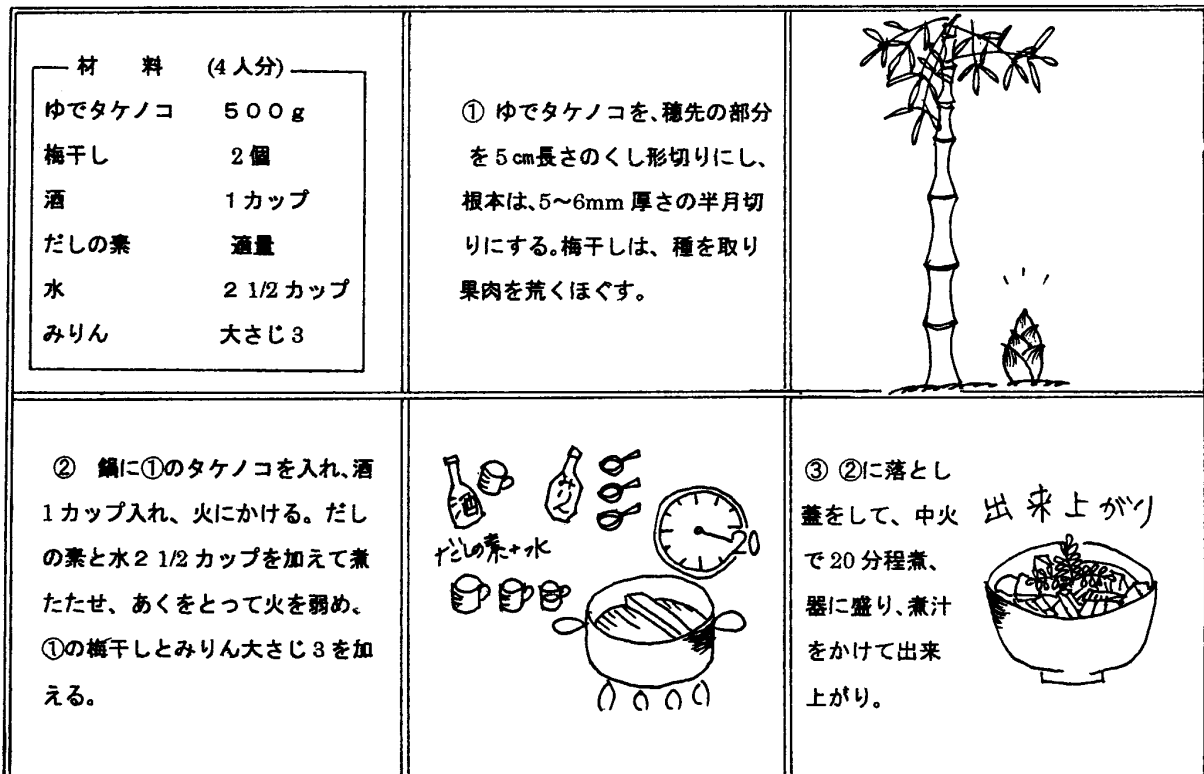 材　料　(4人分)
ゆでタケノコ　５００ｇ
梅干し　2個
酒　1カップ
だしの素　適量
水　２ 1/2 カップ
みりん　大さじ３
① ゆでタケノコを、穂先の部分
を５㎝長さのくし形切りにし、
根本は、5～6mm 厚さの半月切
りにする。梅干しは、種を取り
果肉を荒くほぐす。
②　鍋に①のタケノコを入れ、酒
1カップ入れ、火にかける。だし
の素と水２ 1/2 カップを加えて煮
たたせ、あくをとって火を弱め、
①の梅干しとみりん大さじ３を加
える。
酒
みりん
20
だしの素+水
③ ②に落とし
蓋をして、中火
で 20 分程煮、
器に盛り、煮汁
をかけて出来
上がり。
出来上がり